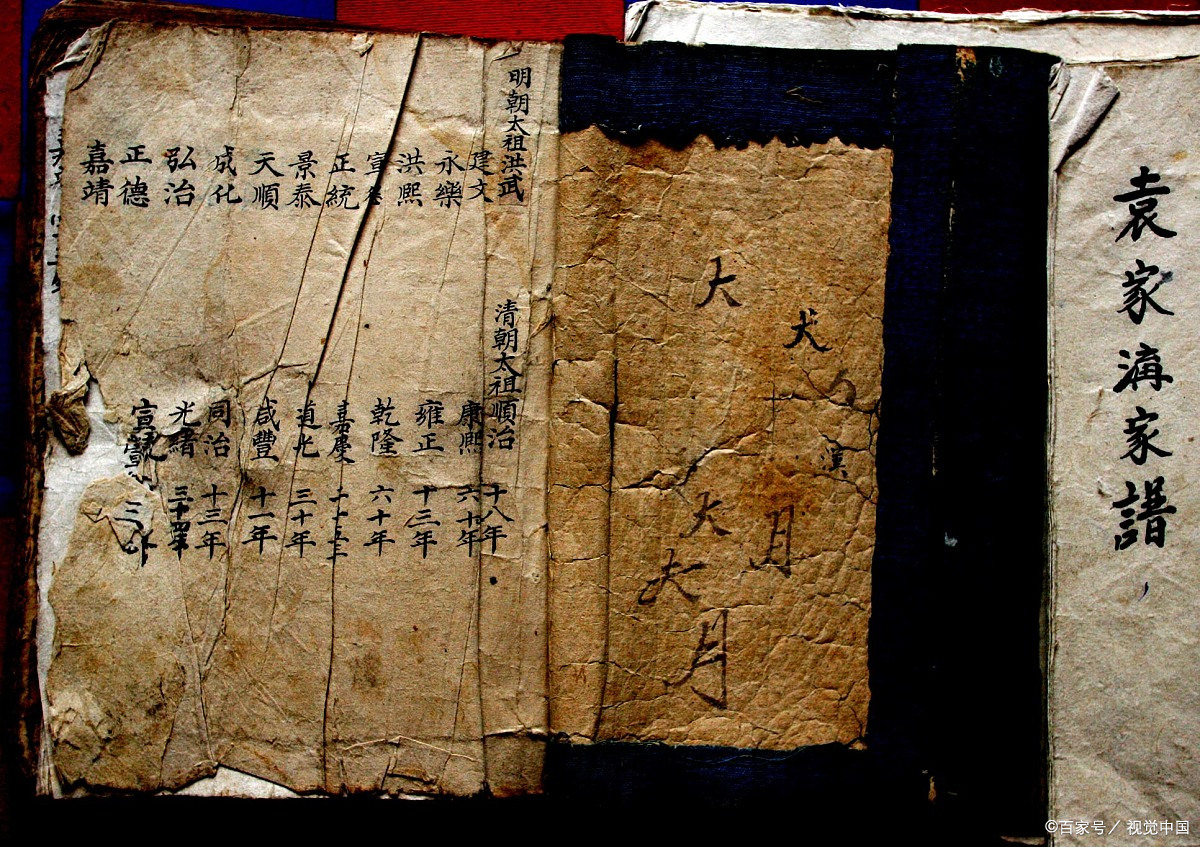 袁家溝家譜
犬
大
月
大
大
月
明朝太祖洪武
建文
永樂
洪熙
宣
正統
景泰
天順
成化
弘治
正德
嘉靖
清朝太祖順治 十八年
康熙 六十年
雍正 十三年
乾隆 六十年
嘉慶
道光 三十年
咸豐 十一年
同治 十三年
光緒
宣
©百家号／视觉中国